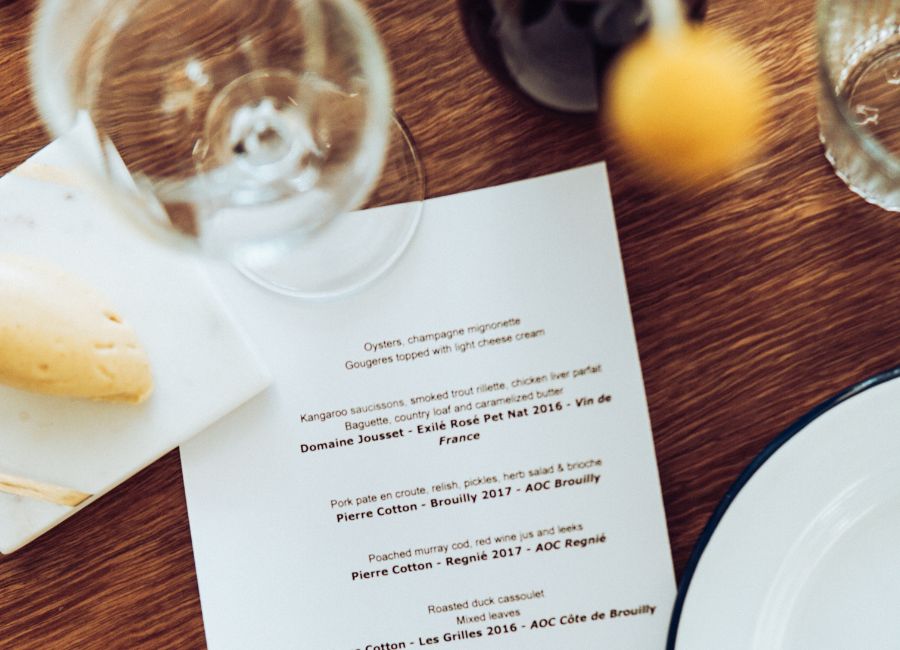 Oysters, champagne mignonette
Gougeres topped with light cheese cream
Kangaroo saucissons, smoked trout rillette, chicken liver parfait
Baguette, country loaf and caramelized butter
Domaine Jousset - Exilé Rosé Pet Nat 2016 - Vin de
France
Pork pate en croute, relish, pickles, herb salad & brioche
Pierre Cotton - Brouilly 2017 - AOC Brouilly
Poached murray cod, red wine jus and leeks
Pierre Cotton - Regnié 2017 - AOC Regnié
Roasted duck cassoulet
Mixed leaves
Cotton - Les Grilles 2016 - AOC Côte de Brouilly